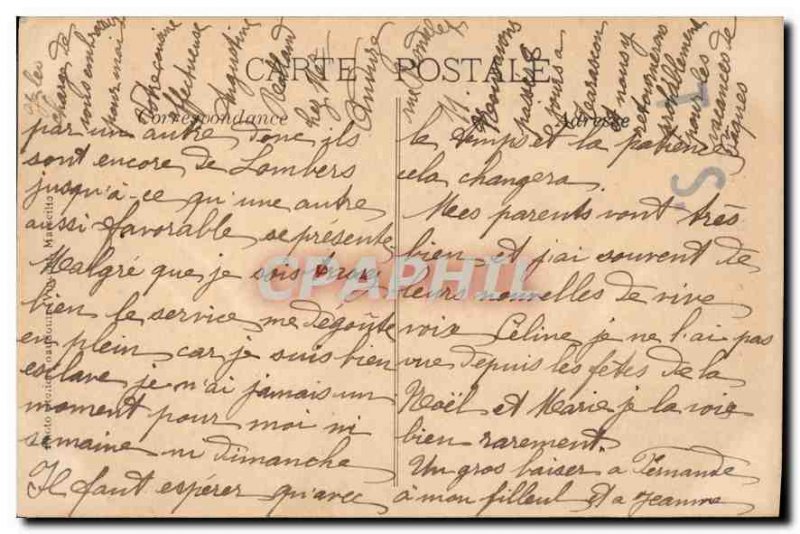 CARTE POSTALE
Correspondance
Adresse
par un autre donc ils
sont encore de Lombers
jusqu'à-ce qu'une autre
aussi favorable se présente
Malgré que je sois assez
bien le service me dégoute
en plein car je suis bien
esclave je n'ai jamais un
moment pour moi ni
semaine ni dimanche
Il faut espérer qu'avec
le temps et la patience
cela changera.
Mes parents vont très
bien et j'ai souvent de
leurs nouvelles de vive
voix Céline je ne l'ai pas
vue depuis les fêtes de la
Noël et Marie je la vois
bien rarement.
Un gros baiser a Fernande
à mon filleul et a Jeanne
charge de
vous embrasser
pour moi
affectueuse
Augustine
Nous avons
passé
jours a
Tarascon
et nous y
retournerons
probablement
pour les
vacances de
Pâques
T
S.
CPAPHIL